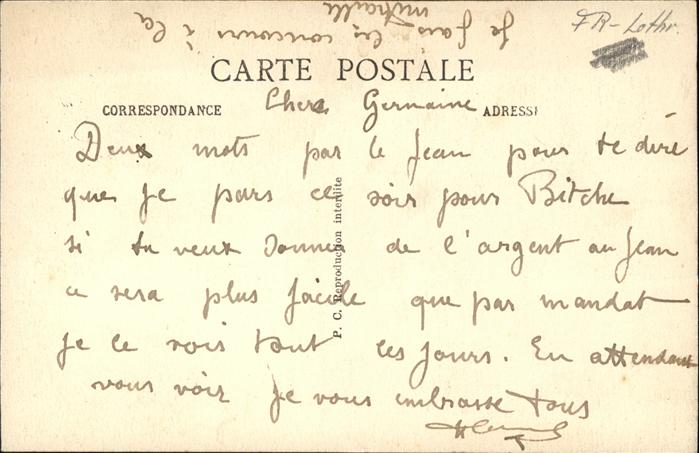 Je fais les concours à la
mitraille
FR-Lothr.
CARTE POSTALE
CORRESPONDANCE
ADRESSE
Chere Germaine
Deux mots par le Jean pour te dire
que je pars ce soir pour Bitche
si tu veux donner de l'argent au Jean
ce sera plus facile que par mandat
je le vois tout les jours. En attendant
vous voir je vous embrasse tous
P. C. Reproduction interdite